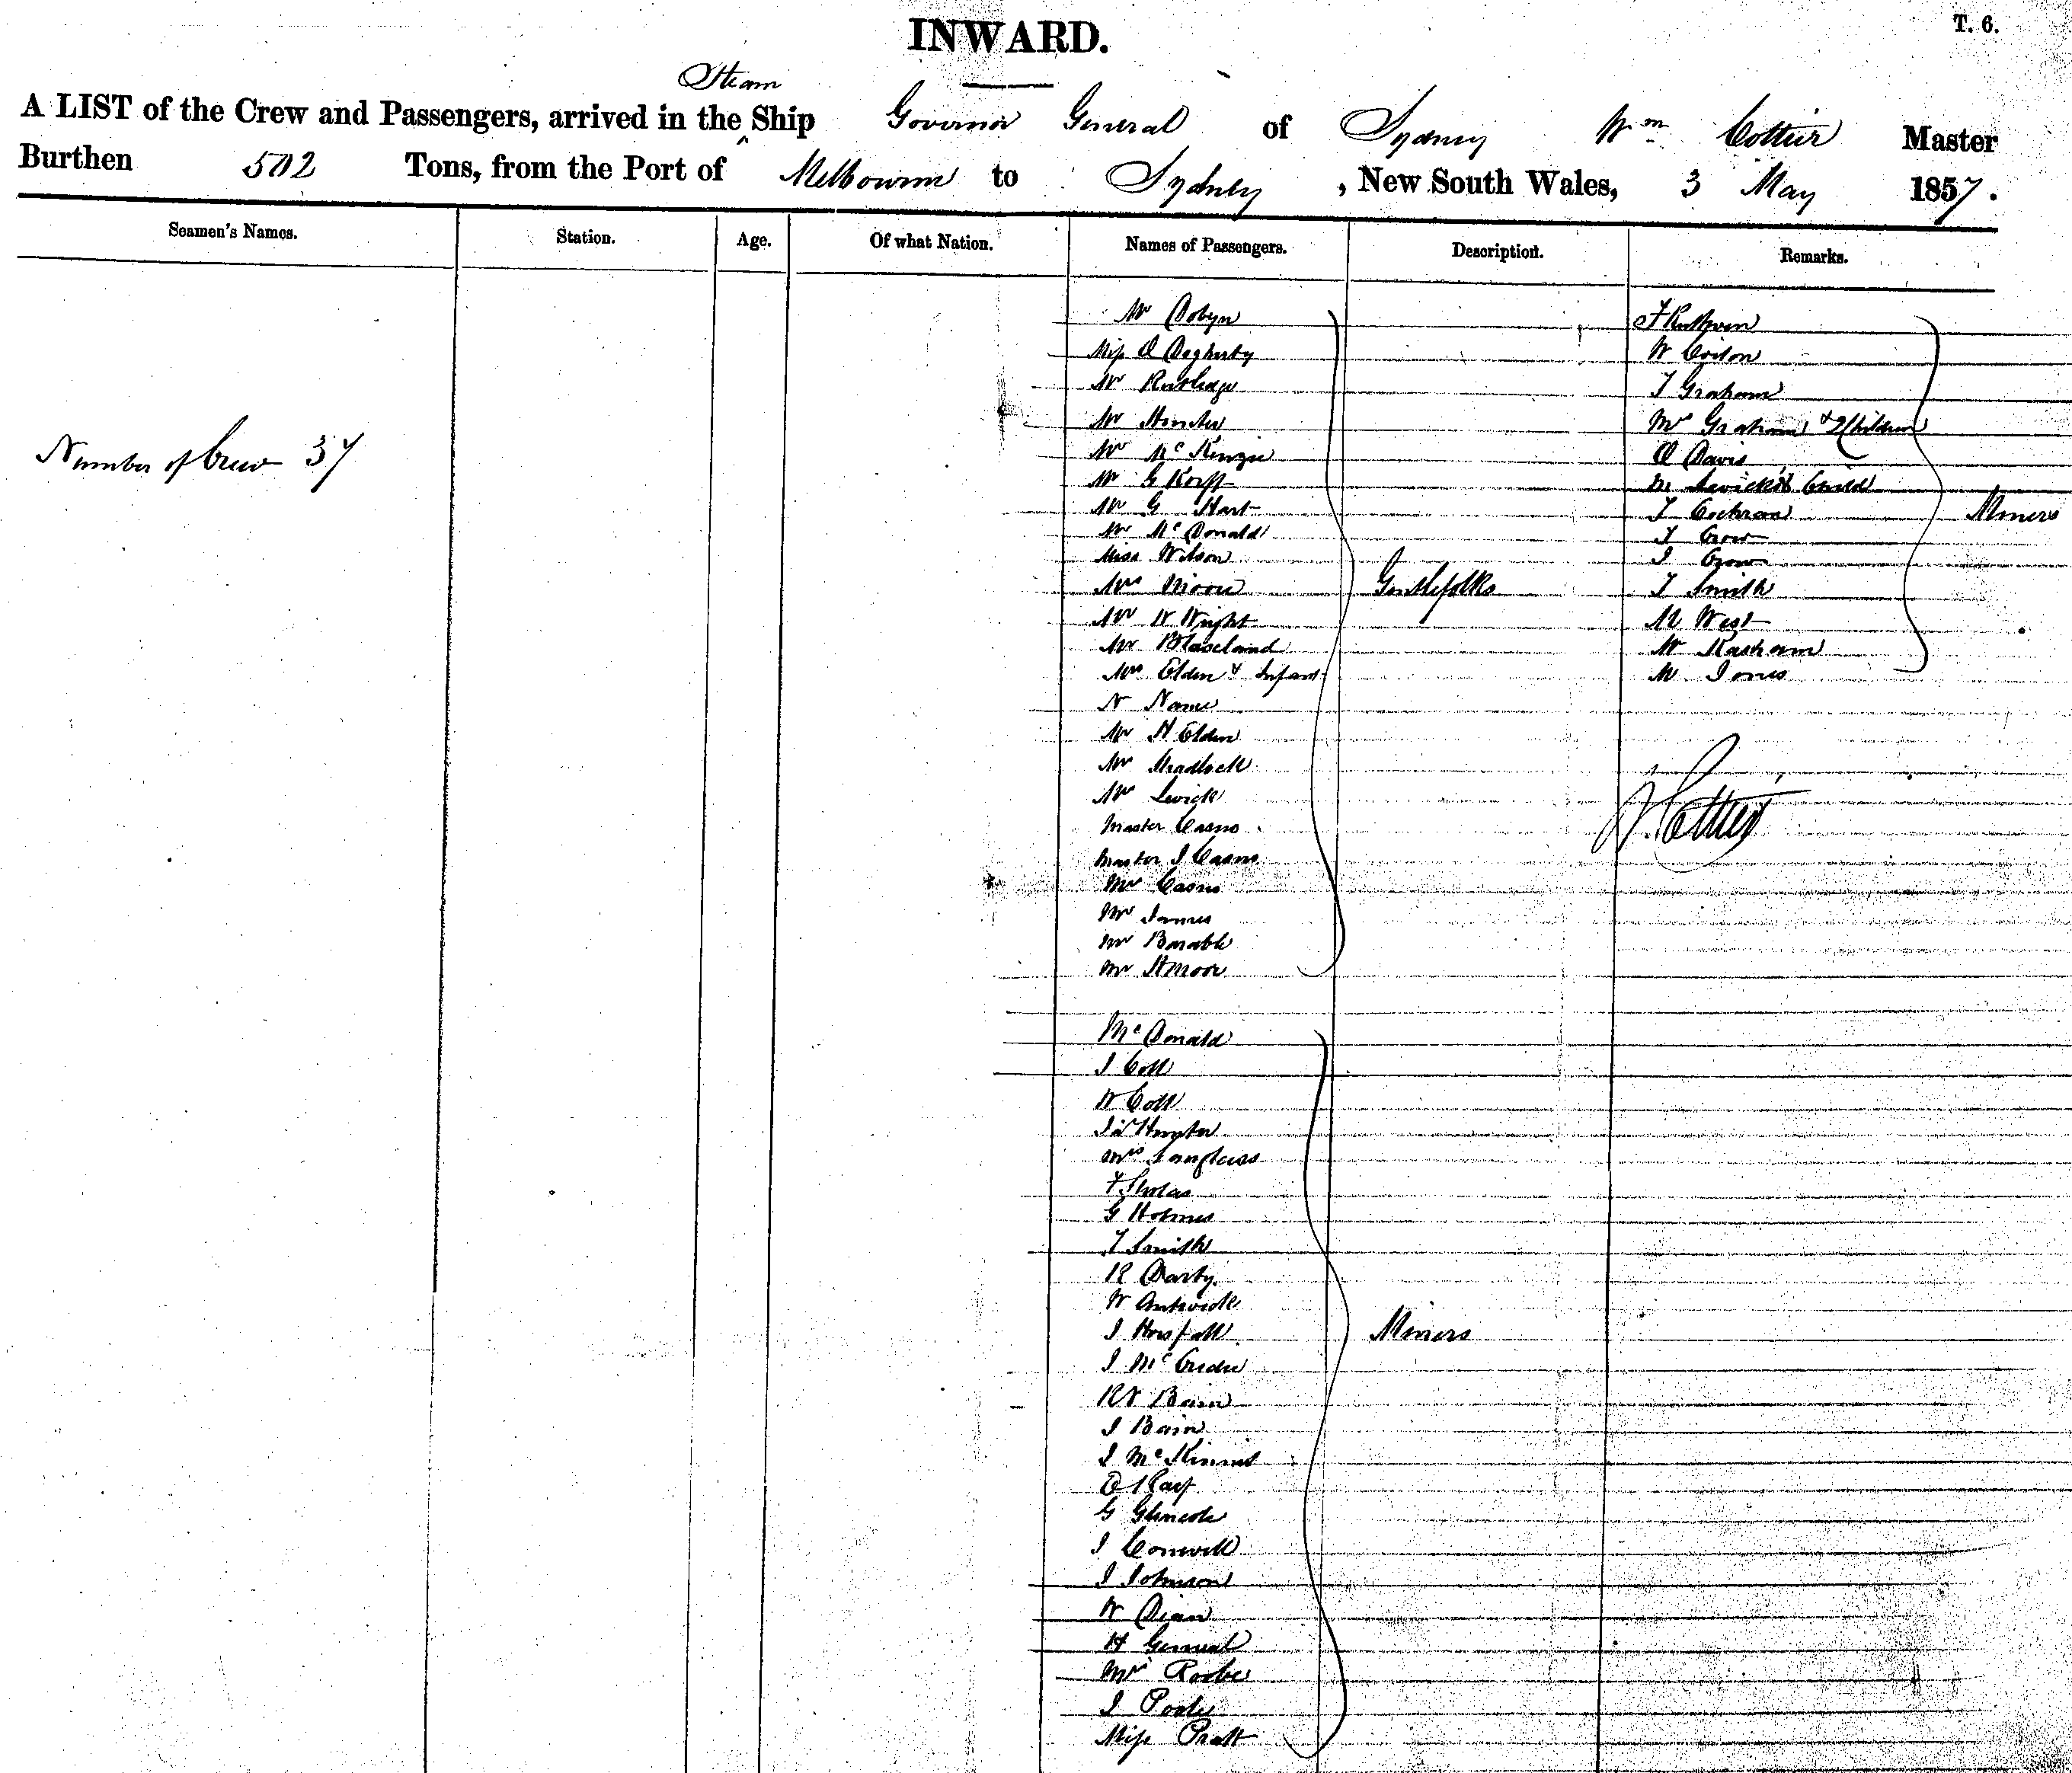 INWARD.
T. 6.
Steam
A LIST of the Crew and Passengers, arrived in the ^ Ship Governor General of Sydney Wm Cottier Master
Burthen 502 Tons, from the Port of Melbourne to Sydney , New South Wales, 3 May 1857.
Seamen's Names. Station. Age. Of what Nation. Names of Passengers. Description. Remarks.
Number of Crew 37
Mr Dobyn
Miss O Dogherty
Mr Rutledge
Mr Hunter
Mr McKenzie
Mr G Korff
Mr G Hart
Mr McDonald
Miss Wilson
Mrs Moore
Mr W Wright
Mr Blaxland
Mrs Elden & Infant
Mr H Elden
Mr
Mr Levick
Master Casno
Master J Casno
Mr Casno
Mr James
Mr Barable
Mr H Moor
Gentlefolks
McDonald
J Coll
W Coll
Hunter
Mrs
G Holmes
T Smith
R Darby
W
J Horsfall
J Mc
Bain
J Bain
J McKinnit
G Glencole
J
J Johnson
W Dean
H
Mrs
J
Miss Pratt
Miners
F Ruthven
W
T Graham
Mrs Graham & 2 Children
D Davis
Levick & Child
T Cochran
T Crow
J Crow
T Smith
M West
W
M Jones
Miners
W. Cottier